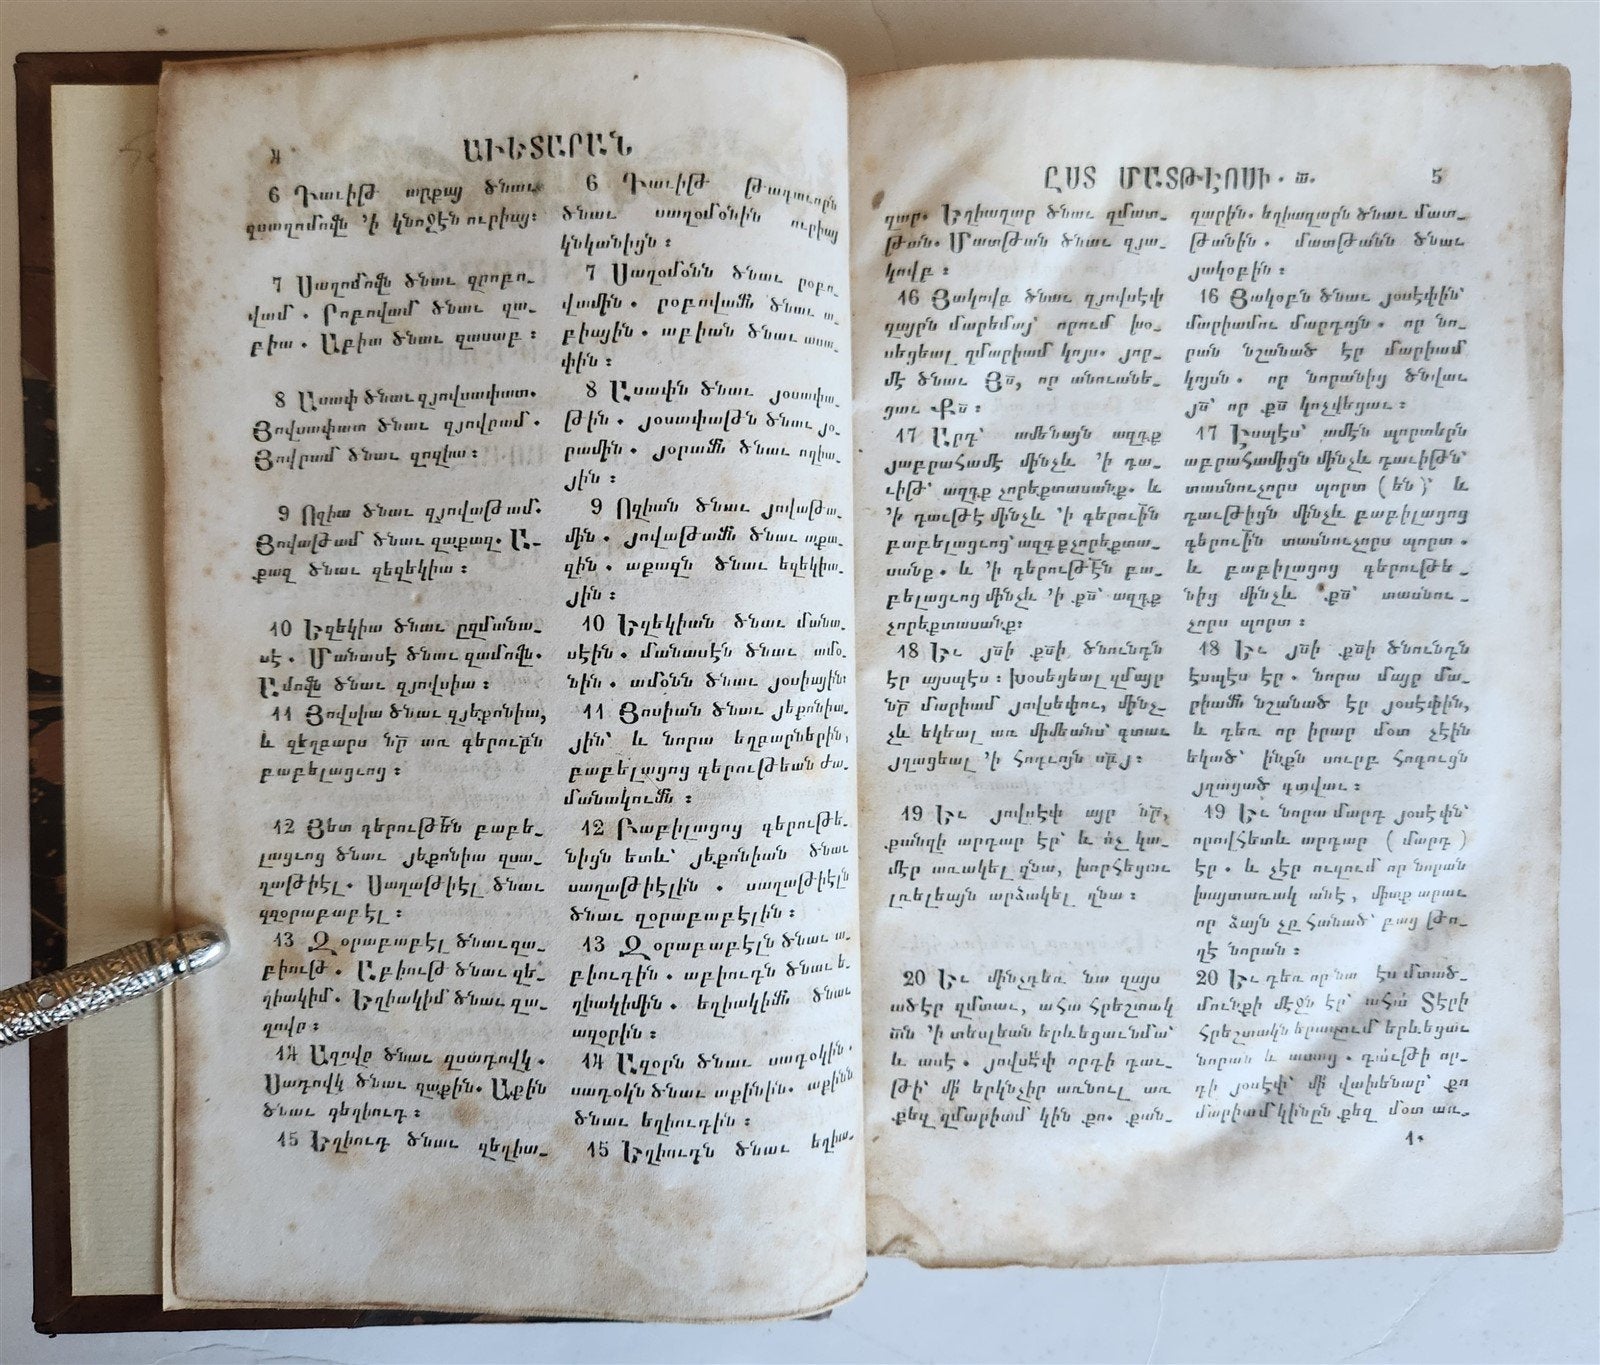 ԱՒԵՏԱՐԱՆ
6 Դաւիթ արքայ ծնաւ
զսաղոմովն ՚ի կնոջէն ուրիայ։
7 Սաղոմովն ծնաւ զրոբո֊
վամ . Րոբովամ ծնաւ զա֊
բիա . Աբիա ծնաւ զասաբ ։
8 Ասափ ծնաւ զյովսափատ.
Յովսափատ ծնաւ զյովրամ .
Յովրամ ծնաւ զոզիա ։
9 Ոզիա ծնաւ զյովաթամ.
Յովաթամ ծնաւ զաքազ. Ա֊
քազ ծնաւ զեզեկիա ։
10 Եզեկիա ծնաւ ըզմանա֊
սէ . Մանասէ ծնաւ զամովն.
Ամովն ծնաւ զյովսիա ։
11 Յովսիա ծնաւ զյեքոնիա,
և զեղբարս նր առ գերութբն
բաբելացւոց ։
12 Յետ գերութեն բաբե֊
լացւոց ծնաւ յեքոնիա զսա֊
ղաթիէլ . Սաղաթիէլ ծնաւ
զզօրաբաբէլ ։
13 Զօրաբաբէլ ծնաւ զա֊
բիութ . Աբիութ ծնաւ զե֊
ղիակիմ. Եղիակիմ ծնաւ զա֊
զովր ։
14 Ազովր ծնաւ զսադովկ .
Սադովկ ծնաւ զաքին. Աքին
ծնաւ զեղիուդ ։
15 Եղիուդ ծնաւ զեղիա֊
6 Դաւիթ թագաւորն
ծնաւ սաղօմօնին ուրիայ
կնկանիցն ։
7 Սաղօմօնն ծնաւ րօբո֊
վամին . րօբովամն ծնաւ ա֊
բիային . աբիան ծնաւ ասա֊
փին ։
8 Ասափն ծնաւ յօսափա֊
թին . յօսափաթն ծնաւ յօ֊
րամին . յօրամն ծնաւ ոզիա֊
յին ։
9 Ոզիան ծնաւ յովաթա֊
մին . յովաթամն ծնաւ աքա֊
զին . աքազն ծնաւ եզեկիա֊
յին ։
10 Եզեկիան ծնաւ մանա֊
սէին . մանասէն ծնաւ ամօ֊
նին . ամօնն ծնաւ յօսիային։
11 Յօսիան ծնաւ յեքոնիա֊
յին՝ և նորա եղբարներին,
բաբելացոց գերութեան ժա֊
մանակումն ։
12 Բաբիլացոց գերութե֊
նիցն ետև՝ յեքոնիան ծնաւ
սաղաթիէլին . սաղաթիէլն
ծնաւ զօրաբաբէլին ։
13 Զօրաբաբէլն ծնաւ ա֊
բիուդին . աբիուդն ծնաւ ե֊
ղիակիմին . եղիակիմն ծնաւ
ազօրին ։
14 Ազօրն ծնաւ սադօկին .
սադօկն ծնաւ աքինին. աքինն
ծնաւ եղիուդին ։
15 Եղիուդն ծնաւ եղիա֊
ԸՍՏ ՄԱՏԹԷՈՍԻ . ա. 5
զար. Եղիազար ծնաւ զմատ֊
թան. Մատթան ծնաւ զյա֊
կովբ ։
16 Յակովբ ծնաւ զյովսէփ
զայրն մարեմայ՝ որում խօ֊
սեցեալ զմարիամ կոյս. յոր֊
մէ ծնաւ Յս, որ անուանե֊
ցաւ Քս ։
17 Արդ՝ ամենայն ազգք
յաբրահամէ մինչև ՚ի դա֊
ւիթ՝ ազգք չորեքտասանք. և
՚ի դաւթէ մինչև ՚ի գերուին
բաբելացւոց՝ ազգք չորեքտա֊
սանք . և ՚ի գերութէն բա֊
բելացւոց մինչև ՚ի քս՝ ազգք
չորեքտասանք։
18 Եւ յսի քսի ծնունդն
էր այսպէս ։ Խօսեցեալ զմայր
նր մարիամ յովսեփու, մինչ֊
չև եկեալ առ միմեանս՝ գտաւ
յղացեալ ՚ի հոգւոյն սրբոյ ։
19 Եւ յովսէփ այր նր,
քանզի արդար էր՝ և ոչ կա֊
մէր առակել զնա, խորհեցաւ
լռելեայն արձակել զնա ։
20 Եւ մինչդեռ նա զայս
ածէր զմտաւ, ահա հրեշտակ
տն ՚ի տեսլեան երևեցաւ նմա՝
և ասէ . յովսէփ որդի դաւ֊
թի՝ մի երկնչիր առնուլ առ
քեզ զմարիամ կին քո. քան֊
զարին. եղիազարն ծնաւ մատ֊
թանին . մատթանն ծնաւ
յակօբին ։
16 Յակօբն ծնաւ յօսէփին՝
մարիամու մարդոյն . որ նո֊
րան նշանած էր մարիամ
կոյսն . որ նորանից ծնվաւ
յս՝ որ քս կոչվեցաւ ։
17 Էսպէս՝ ամէն պորտերն
աբրահամիցն մինչև դաւիթն՝
տասնուչորս պորտ (են)՝ և
դաւթիցն մինչև բաբիլացոց
գերուին տասնուչորս պորտ .
և բաբիլացոց գերութե֊
նից մինչև քս՝ տասնու֊
չորս պորտ ։
18 Եւ յսի քսի ծնունդն
էսպէս էր . նորա մայր մա֊
րիամն նշանած էր յօսէփին,
և դեռ որ իրար մօտ չէին
եկած՝ ինքն սուրբ հոգուցն
յղացած գտվաւ ։
19 Եւ նորա մարդ յօսէփն՝
որովհետև արդար ( մարդ )
էր . և չէր ուզում որ նորան
խայտառակ անէ , միտք արաւ
որ ձայն չը հանած՝ բաց թո֊
ղէ նորան ։
20 Եւ դեռ որ նա էս մտած֊
մունքի մէջն էր՝ ահա Տէրի
հրեշտակն երազում երևեցաւ
նորան և ասոց . դաւթի որ֊
դի յօսէփ՝ մի վախենար՝ քո
մարիամ կինըն քեզ մօտ առ֊
1*